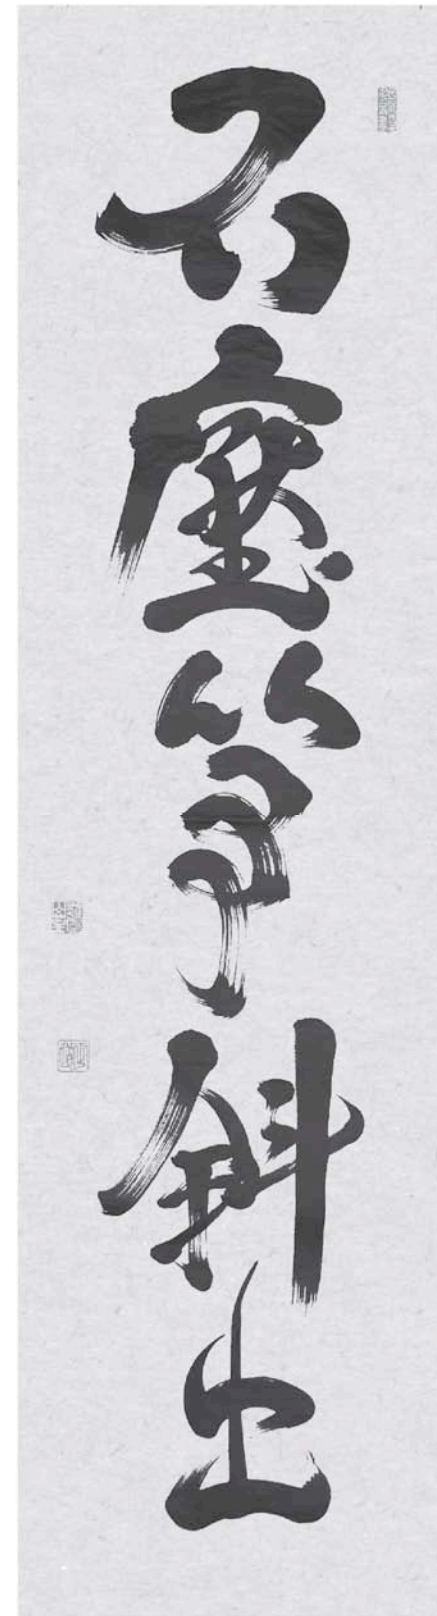 石壓笋斜出